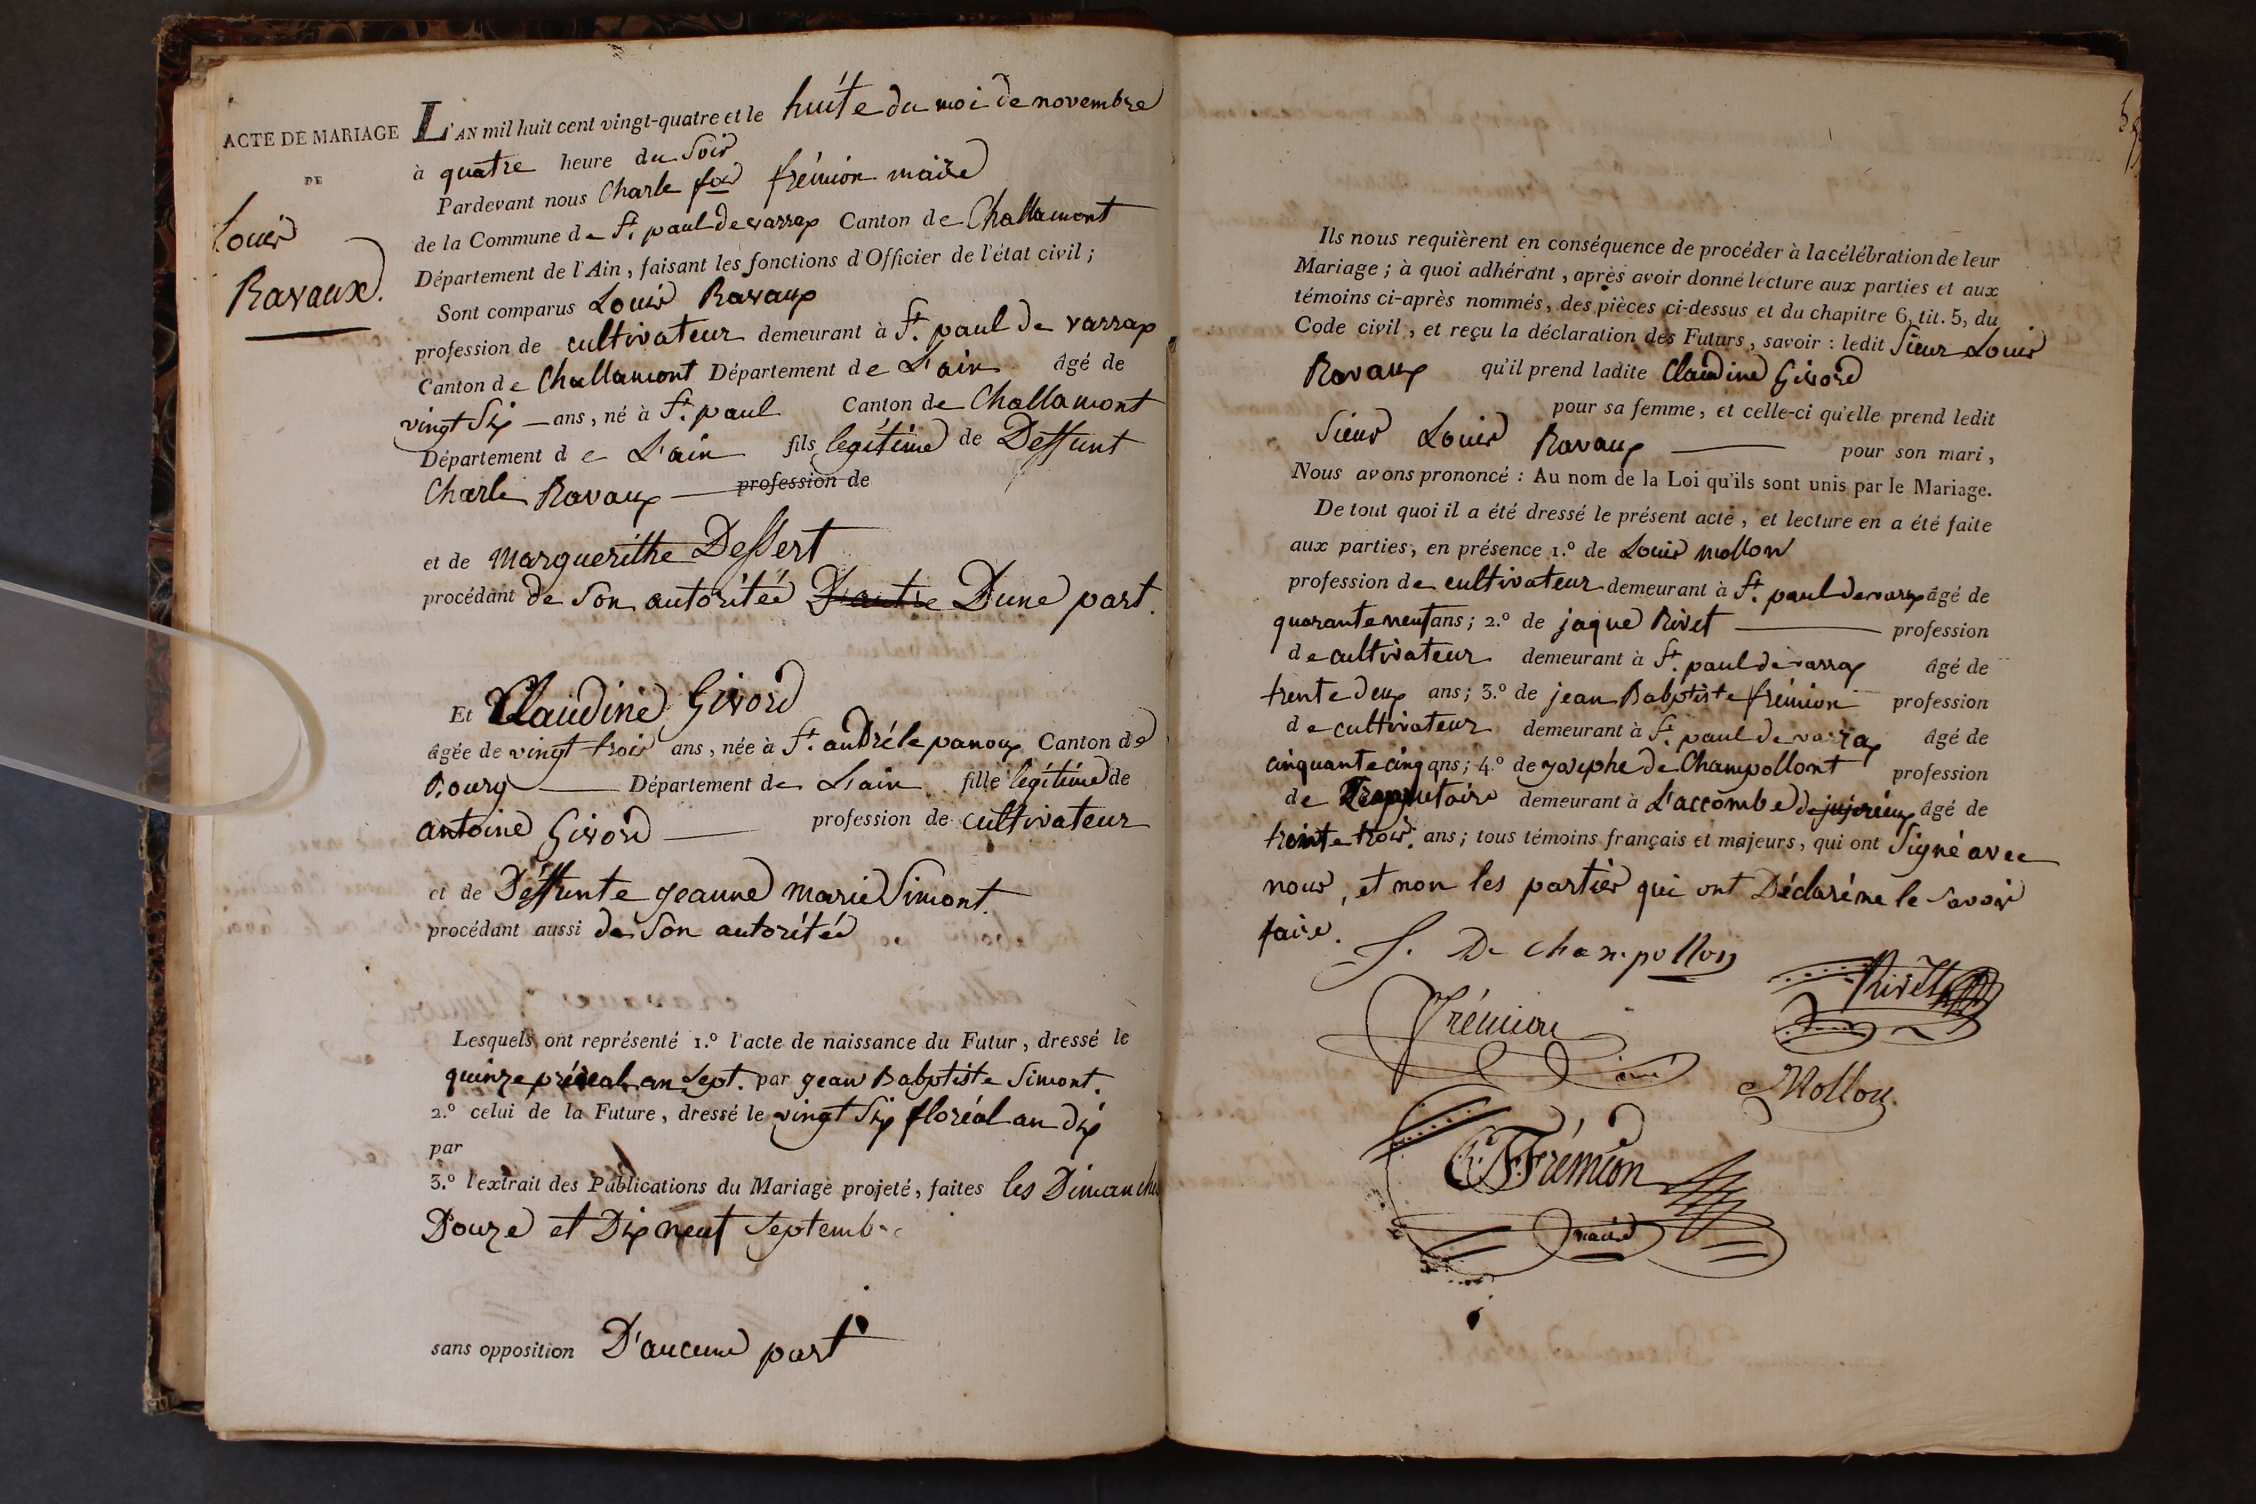 ACTE DE MARIAGE
DE
Louis
Ravaux.
L'AN mil huit cent vingt-quatre et le huite du moi de novembre
à quatre heure du soir
Pardevant nous Charle fois frémion maire
de la Commune de St. paul de varrax Canton de Challamont
Département de l'Ain, faisant les fonctions d'Officier de l'état civil ;
Sont comparus Louis Ravaux
profession de cultivateur demeurant à St. paul de varrax
Canton de Challamont Département de L'ain âgé de
vingt Six — ans, né à St. paul Canton de Challamont
Département de L'ain fils legitime de Deffunt
Charle Ravaux — profession de
et de Marguerithe Dessert
procédant de Son autoritée D'autre Dune part.
Et Claudine Givord
âgée de vingt trois ans, née à St. andré le panoux Canton de
Bourg — Département de L'ain fille legitime de
antoine Givord — profession de cultivateur
et de Déffunte jeanne marie Simont.
procédant aussi de Son autoritée
Lesquels ont représenté 1.º l'acte de naissance du Futur, dressé le
quinze prérial an Sept. par jean Babptiste Simont.
2.º celui de la Future, dressé le vingt Six floréal an dix
par
3.º l'extrait des Publications du Mariage projeté, faites les Dimanche
Douze et Dix neuf Septembre
sans opposition D'aucune part
Ils nous requièrent en conséquence de procéder à la célébration de leur
Mariage ; à quoi adhérant, après avoir donné lecture aux parties et aux
témoins ci-après nommés, des pièces ci-dessus et du chapitre 6, tit. 5, du
Code civil, et reçu la déclaration des Futurs, savoir : ledit Sieur Louis
Ravaux qu'il prend ladite Claudine Givord
pour sa femme, et celle-ci qu'elle prend ledit
Sieur Louis Ravaux — pour son mari,
Nous avons prononcé : Au nom de la Loi qu'ils sont unis par le Mariage.
De tout quoi il a été dressé le présent acte, et lecture en a été faite
aux parties, en présence 1.º de Louis mollon
profession de cultivateur demeurant à St. paul de varax âgé de
quarante neuf ans ; 2.º de jaque Rivet — profession
de cultivateur demeurant à St. paul de varrax âgé de
trente deux ans ; 3.º de jean Babptiste frémion profession
de cultivateur demeurant à St. paul de varrax âgé de
cinquante cinq ans ; 4.º de josephe de Champollont profession
de Propriétaire demeurant à L'accombe de jujurieux âgé de
trente trois. ans ; tous témoins français et majeurs, qui ont Signé avec
nous, et non les partiés qui ont Déclaré ne le Savoir
faire.
J. De champollon
Rivet
Frémion
ainé
Mollon.
C. F. Frémion
maire